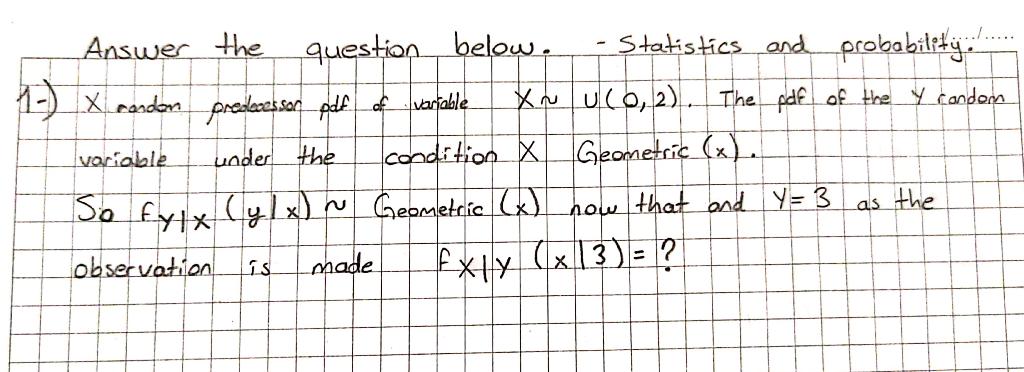 Answer the question below. - Statistics and probability.
1-) X random predecessor pdf of variable X ~ U(0,2). The pdf of the Y random
variable under the condition X Geometric (x).
So fY|X (y|x) ~ Geometric (x) now that and Y=3 as the
observation is made fX|Y (x|3) = ?